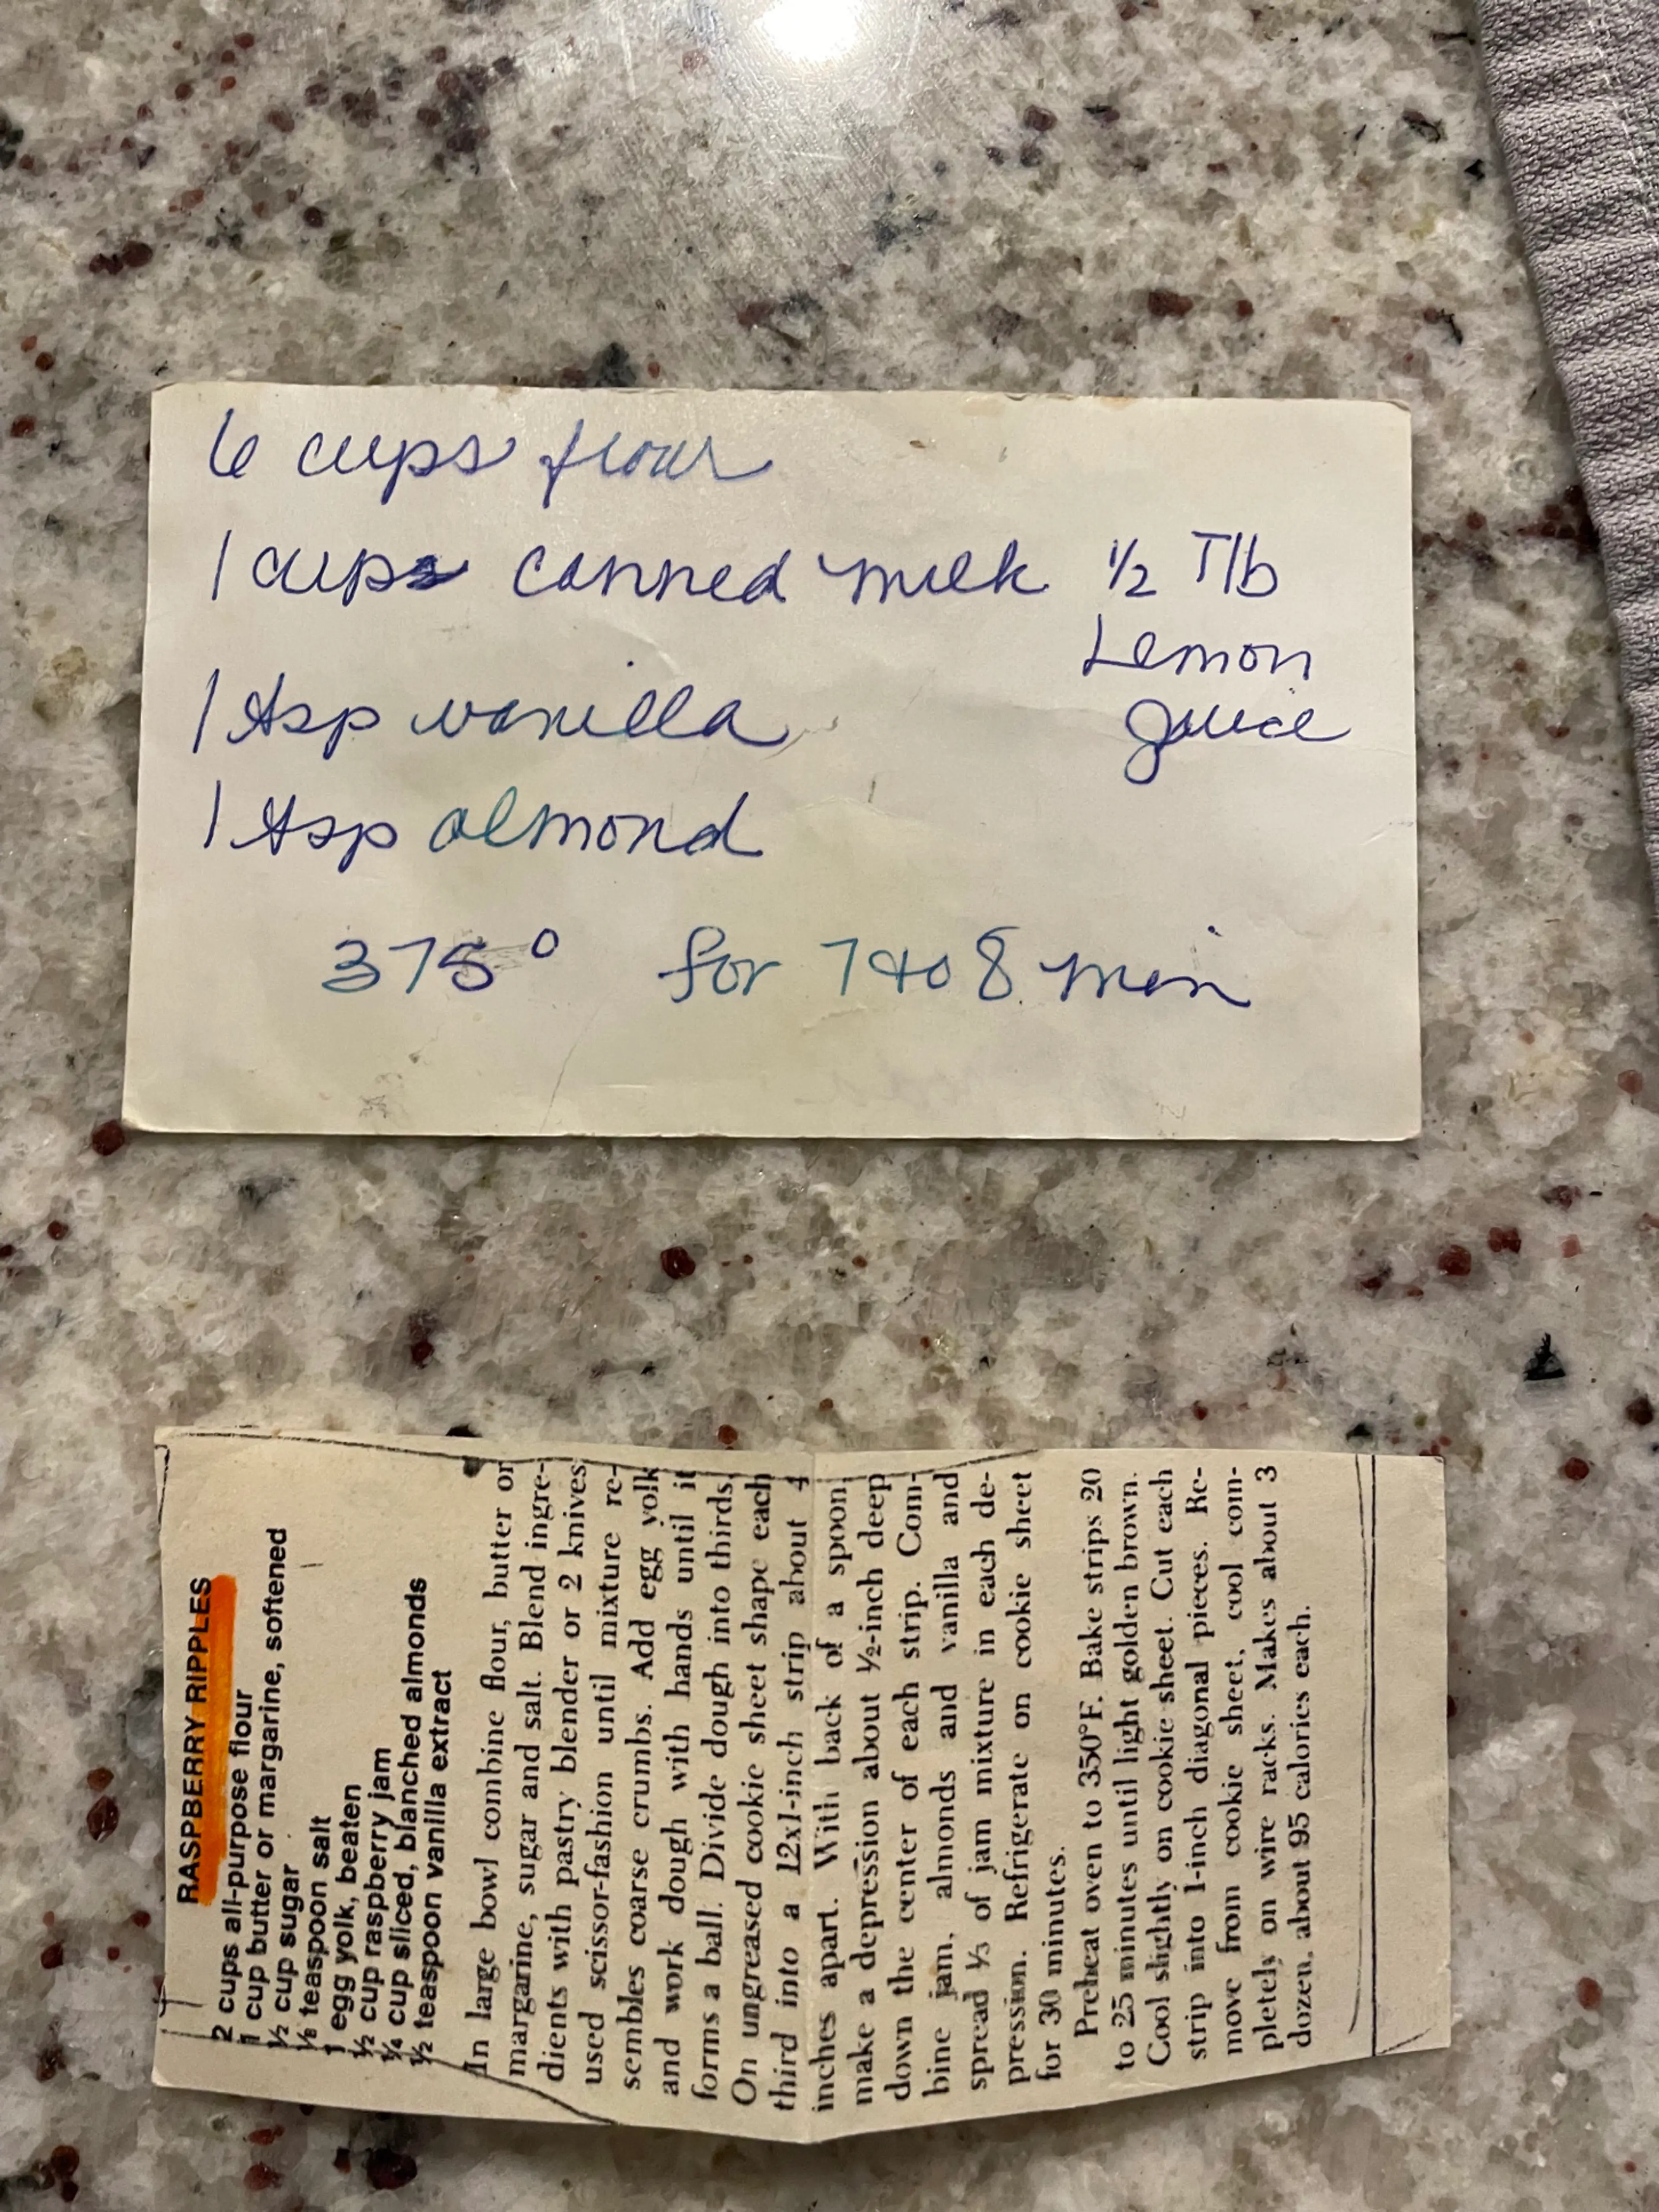 6 cups flour
1 cups canned milk 1/2 Tlb
Lemon
Juice
1 tsp vanilla
1 tsp almond
375° for 7 to 8 min
RASPBERRY RIPPLES
2 cups all-purpose flour
1 cup butter or margarine, softened
½ cup sugar
⅛ teaspoon salt
1 egg yolk, beaten
½ cup raspberry jam
¼ cup sliced, blanched almonds
½ teaspoon vanilla extract
In large bowl combine flour, butter or
margarine, sugar and salt. Blend ingre-
dients with pastry blender or 2 knives
used scissor-fashion until mixture re-
sembles coarse crumbs. Add egg yolk
and work dough with hands until it
forms a ball. Divide dough into thirds.
On ungreased cookie sheet shape each
third into a 12x1-inch strip about 4
inches apart. With back of a spoon,
make a depression about ½-inch deep
down the center of each strip. Com-
bine jam, almonds and vanilla and
spread ⅓ of jam mixture in each de-
pression. Refrigerate on cookie sheet
for 30 minutes.
Preheat oven to 350°F. Bake strips 20
to 25 minutes until light golden brown.
Cool slightly on cookie sheet. Cut each
strip into 1-inch diagonal pieces. Re-
move from cookie sheet, cool com-
pletely on wire racks. Makes about 3
dozen, about 95 calories each.